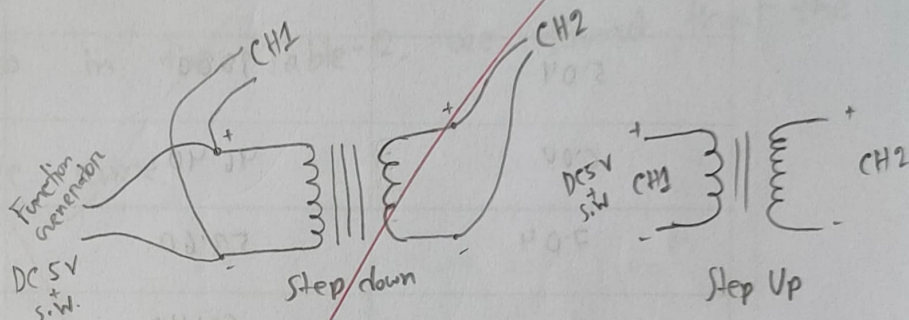 CH1
CH2
+
+
Function
Generator
-
-
DC 5V
+
S.W.
Step down
+
+
DC5V
+
S.W.
CH1
CH2
-
-
Step Up